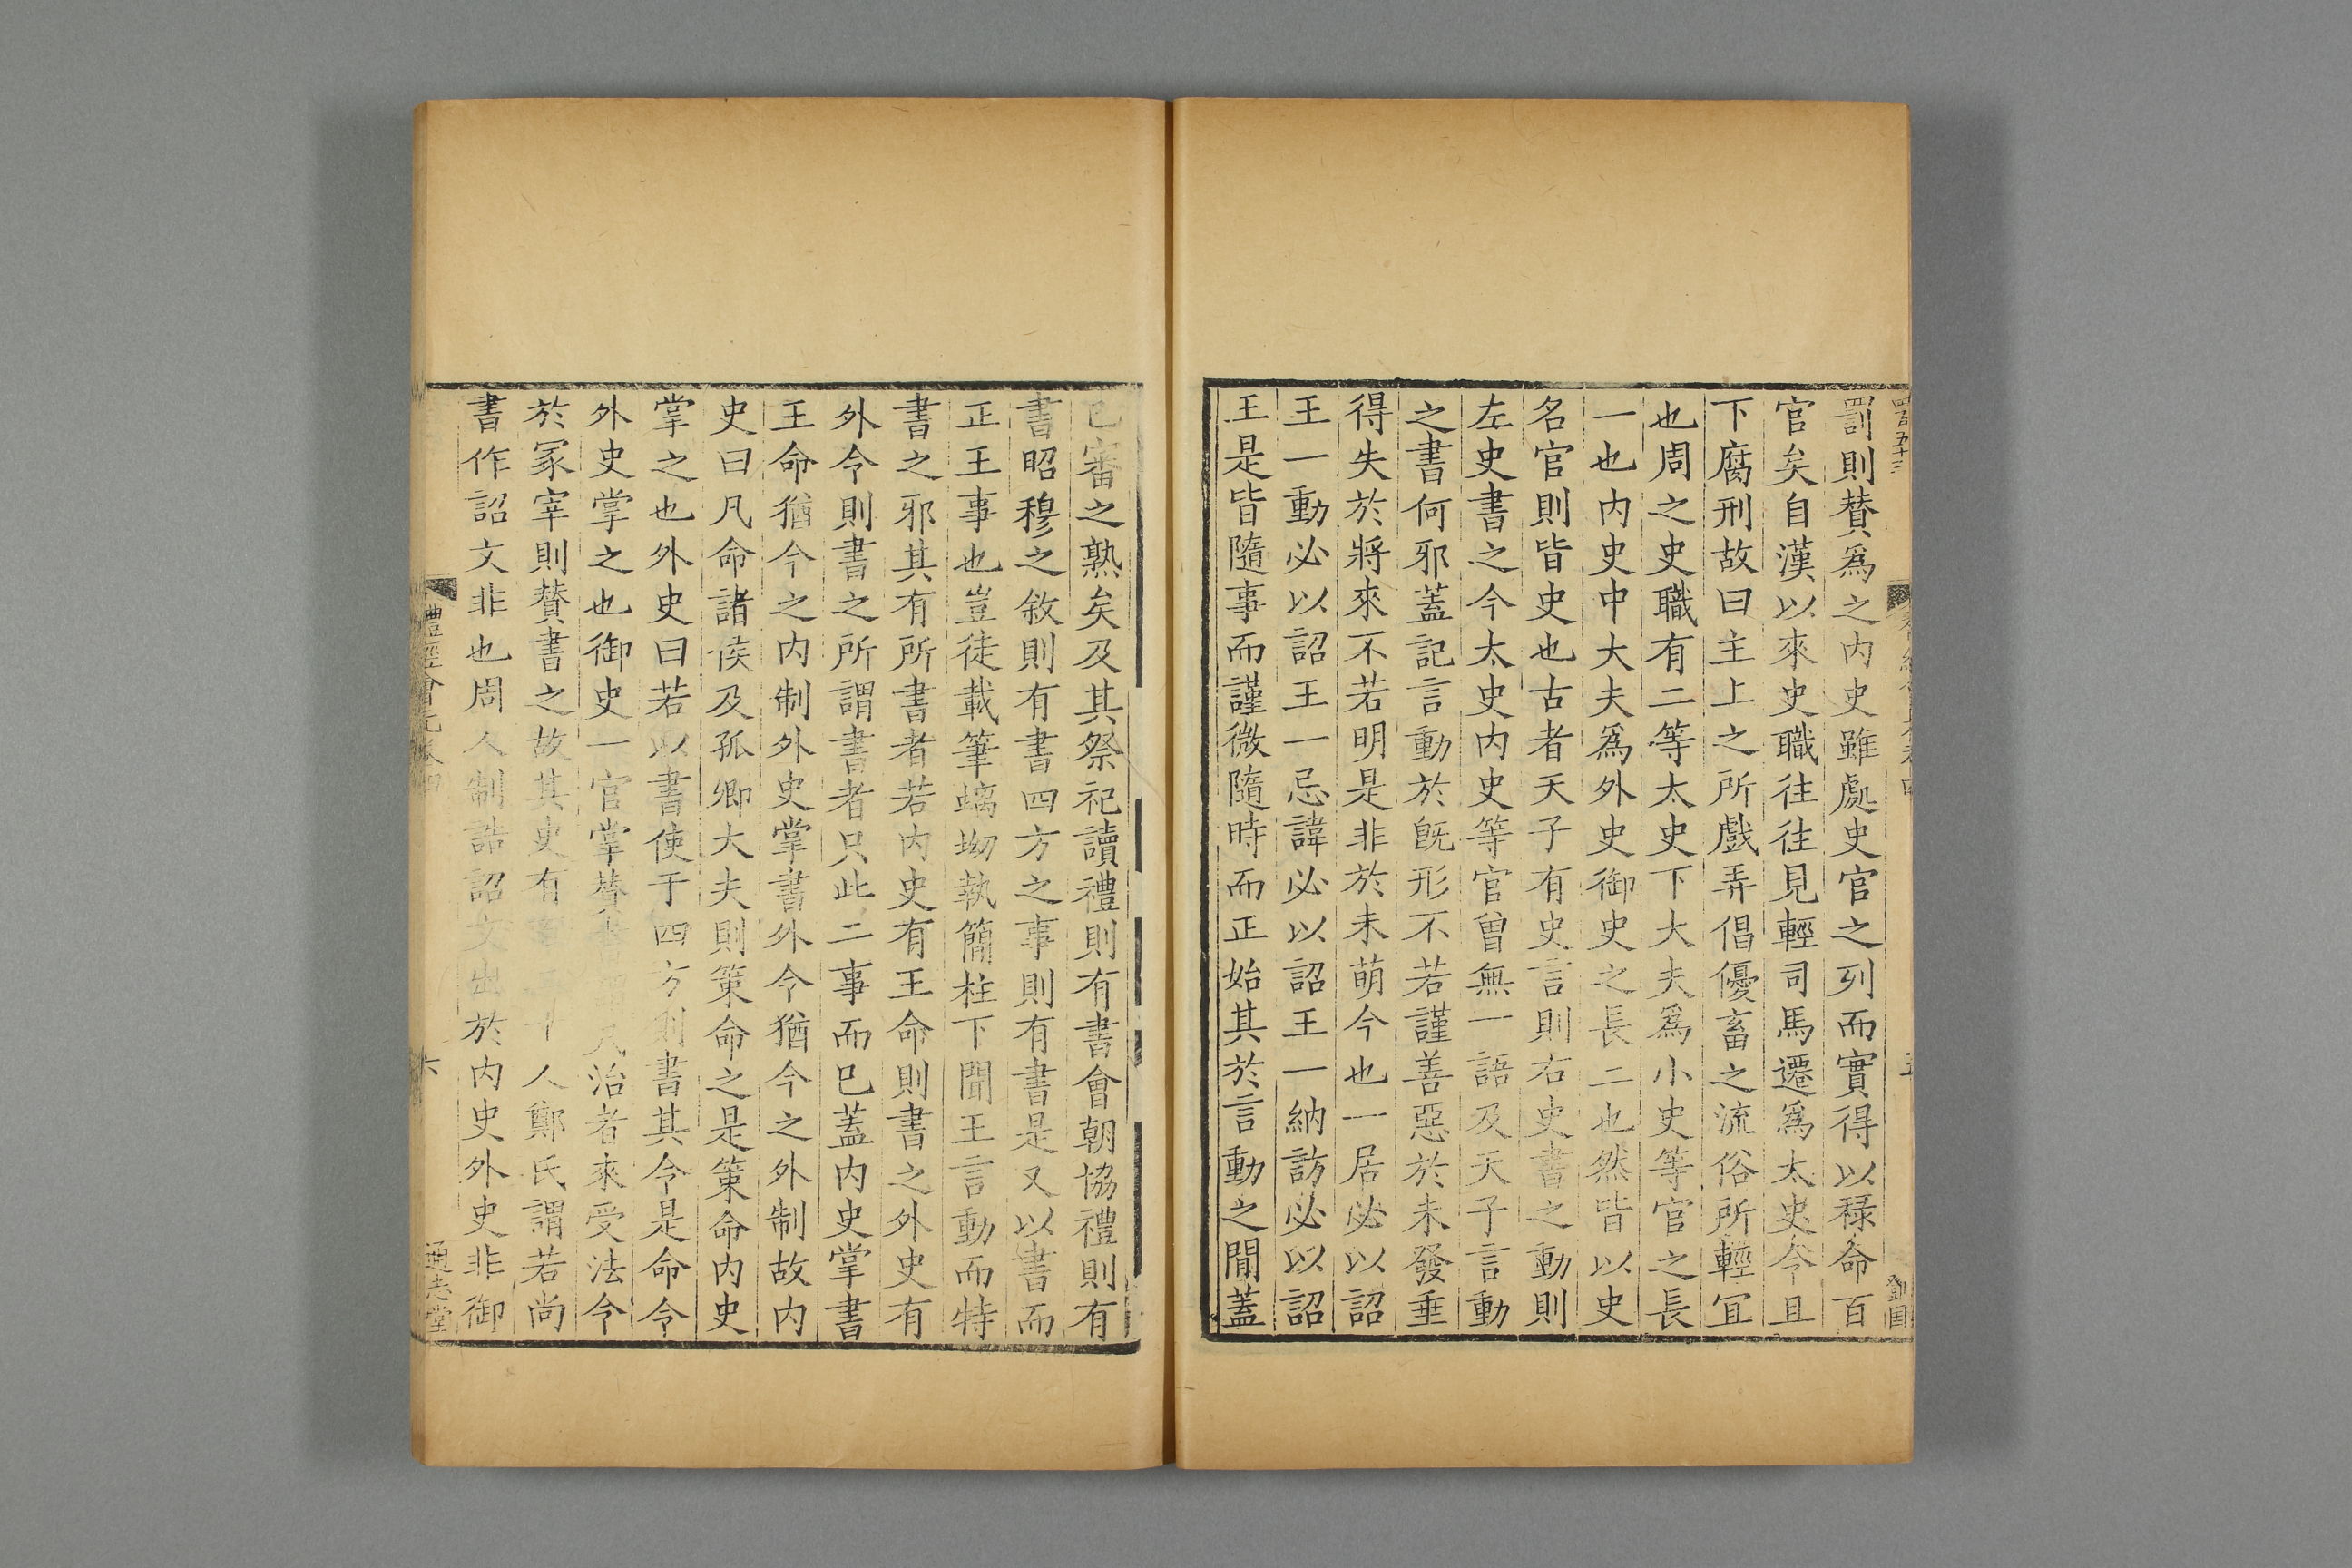 罰則贊爲之内史雖處史官之列而實得以祿命百
官矣自漢以來史職往往見輕司馬遷爲太史令且
下腐刑故曰主上之所戲弄倡優畜之流俗所輕冝
也周之史職有二等太史下大夫爲小史等官之長
一也内史中大夫爲外史御史之長二也然皆以史
名官則皆史也古者天子有史言則右史書之動則
左史書之今太史内史等官曾無一語及天子言動
之書何邪蓋記言動於旣形不若謹善惡於未發垂
得失於將來不若明是非於未萌今也一居必以詔
王一動必以詔王一忌諱必以詔王一納訪必以詔
王是皆隨事而謹微隨時而正始其於言動之閒蓋
已審之熟矣及其祭祀讀禮則有書會朝協禮則有
書昭穆之敘則有書四方之事則有書是又以書而
正王事也豈徒載筆螭坳執簡柱下聞王言動而特
書之邪其有所書者若内史有王命則書之外史有
外令則書之所謂書者只此二事而已蓋内史掌書
王命猶今之内制外史掌書外令猶今之外制故内
史曰凡命諸侯及孤卿大夫則策命之是策命内史
掌之也外史曰若以書使于四方則書其令是命令
外史掌之也御史一官掌贊書凡治者來受法令
於冢宰則贊書之故其史有百二十人鄭氏謂若尚
書作詔文非也周人制誥詔文出於内史外史非御
禮經會元卷四
六
通志堂